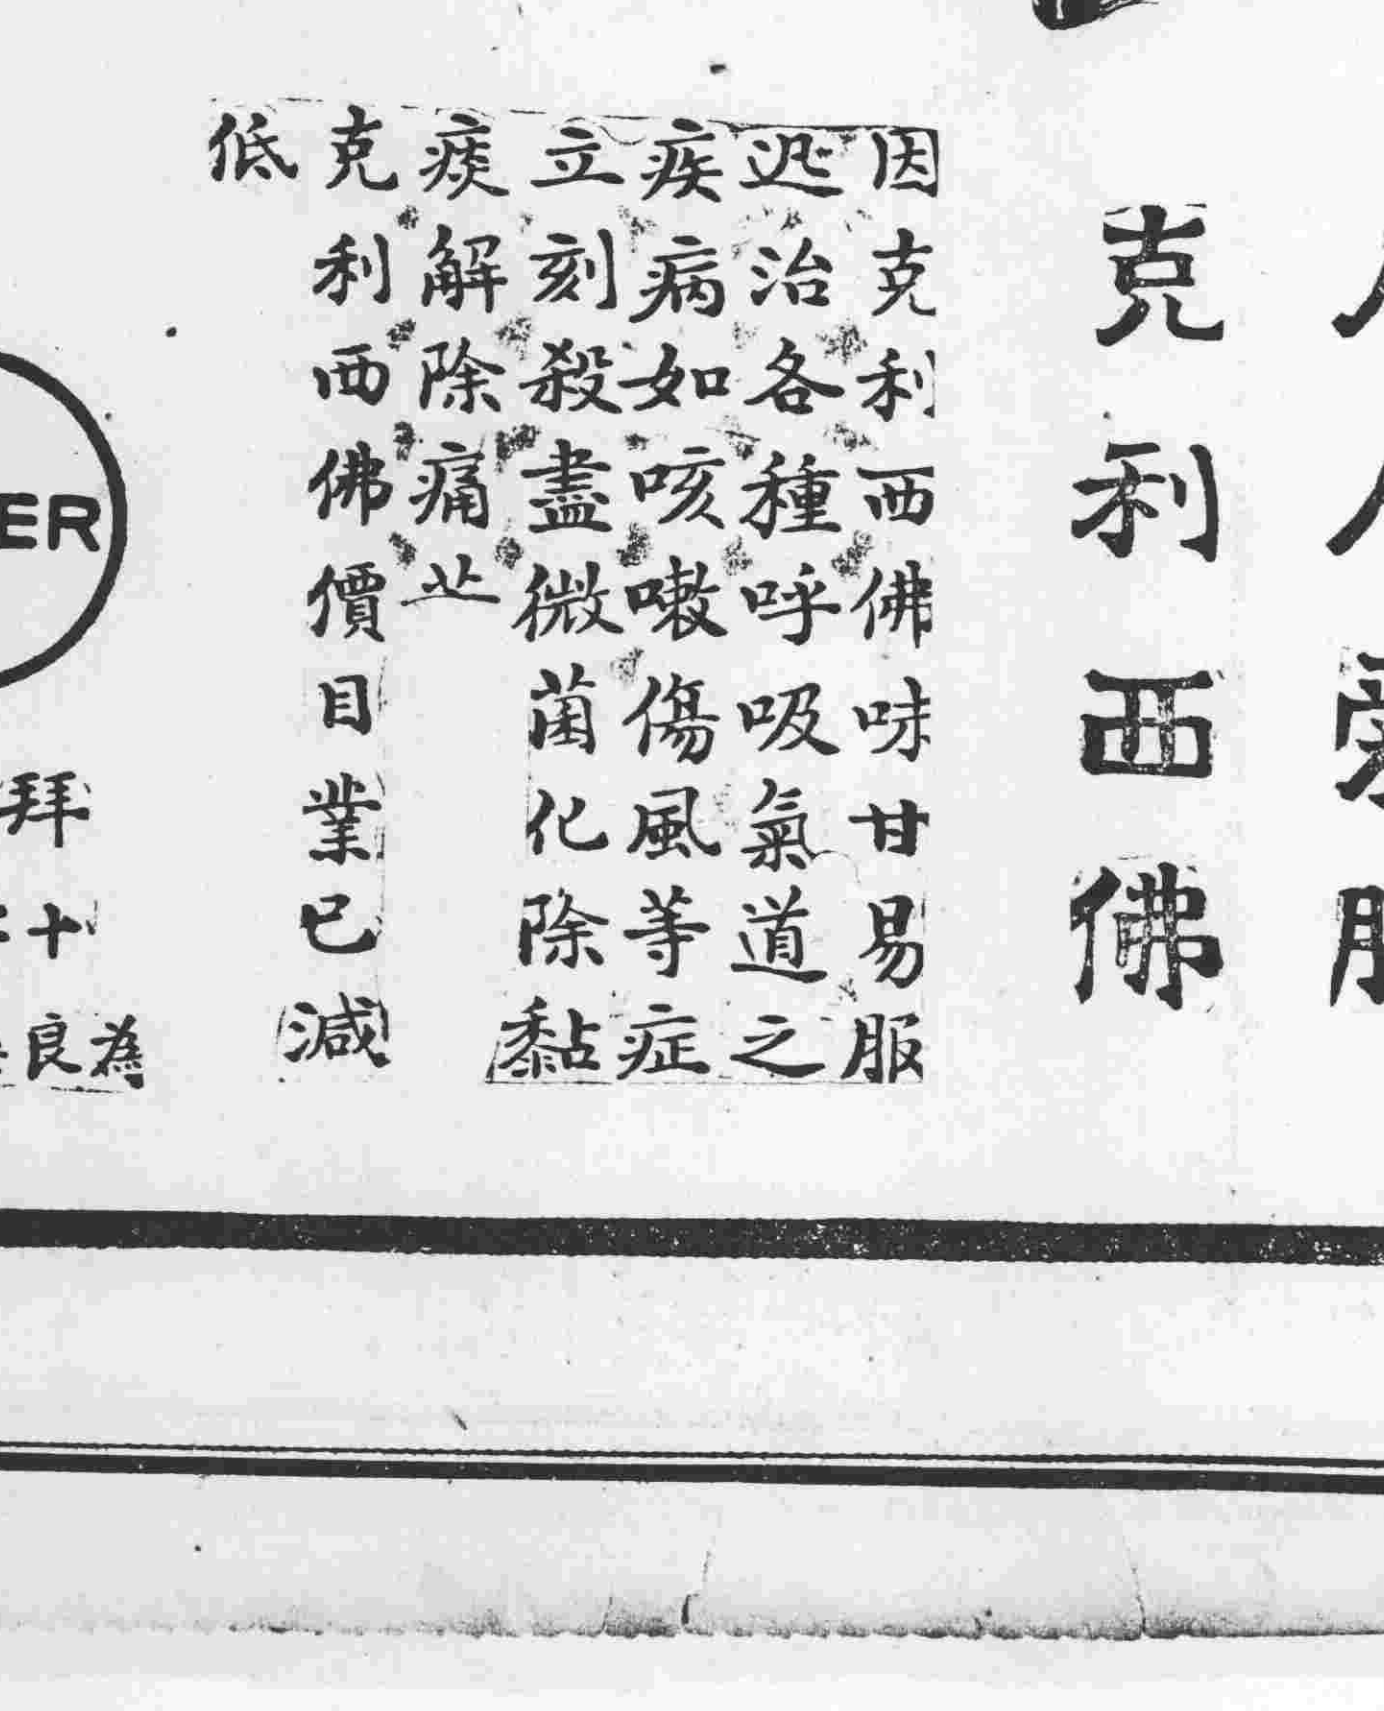 克利西佛
因克利西佛味甘易服
迅治各種呼吸氣道之
疾病如咳嗽傷風等症
立刻殺盡微菌化除黏
痰解除痛
克利西佛價目業已減
低
ER
拜
十
為良